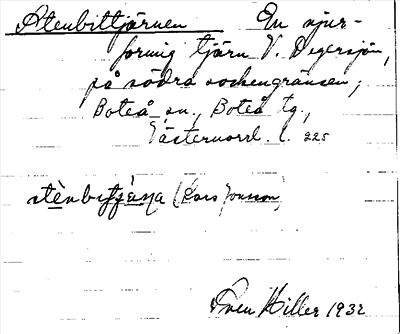 Stenbittjärnen En njur-
formig tjärn V. Degersjön,
på södra sockengränsen;
Boteå sn., Boteå tg.,
Västernorrl. l. 225
(Lars Jonsson)
Sven Hiller 1932